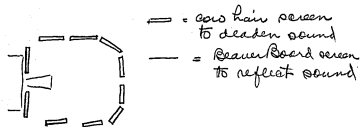 = cow hair screen
to deaden sound
= Beaver Board screen
to reflect sound